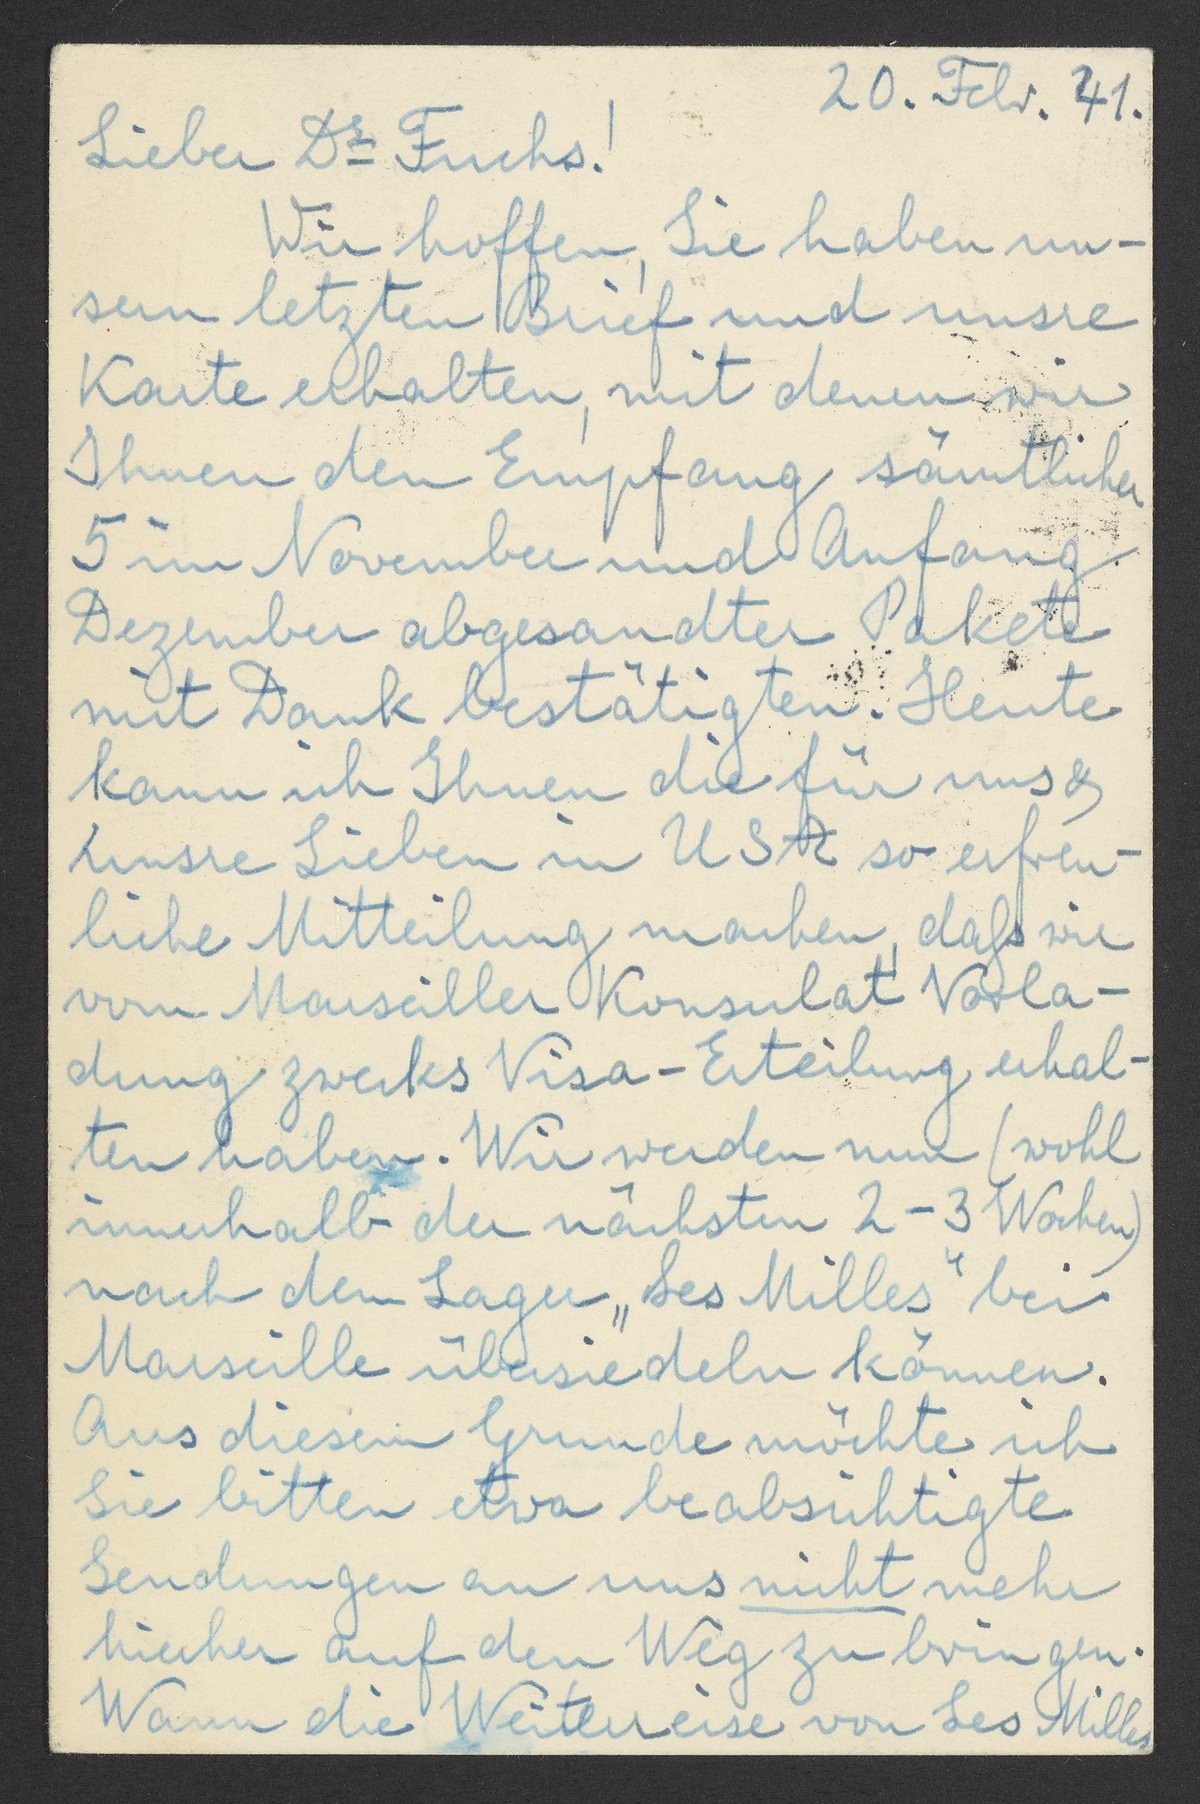 20. Febr. 41.
Lieber Dr Fuchs!
Wir hoffen, Sie haben un-
sern letzten Brief und unsre
Karte erhalten, mit denen wir
Ihnen den Empfang sämtlicher
5 im November und Anfang
Dezember abgesandter Pakete
mit Dank bestätigten. Heute
kann ich Ihnen die für uns &
unsre Lieben in USA so erfreu-
liche Mitteilung machen, daß wir
vom Marseiller Konsulat Vorla-
dung zwecks Visa-Erteilung erhal-
ten haben. Wir werden nun (wohl
innerhalb der nächsten 2-3 Wochen)
nach dem Lager „Les Milles" bei
Marseille übersiedeln können.
Aus diesem Grunde möchte ich
Sie bitten etwa beabsichtigte
Sendungen an uns nicht mehr
hierher auf den Weg zu bringen.
Wann die Weiterreise von Les Milles